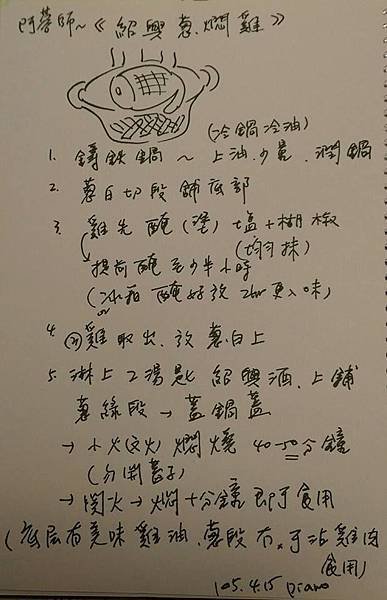 阿蓉師~《紹興蔥燜雞》
(冷鍋冷油)
1. 鑄鐵鍋~上油少量,潤鍋
2. 蔥白切段舖底部
3. 雞先醃(塗)塩+楜椒
(均勻抹)
提前醃至少半小時
(冰箱醃好放2hr更入味)
or
4. 雞取出、放蔥白上
5. 淋上2湯匙紹興酒、上舖
蔥綠段→蓋鍋蓋
→小火(文火)燜燒 40-50分鐘
(勿開蓋子)
→関火→燜十分鐘即可食用
(底层有美味雞油、蔥段有。可沾雞肉
食用)
105.4.15 piano